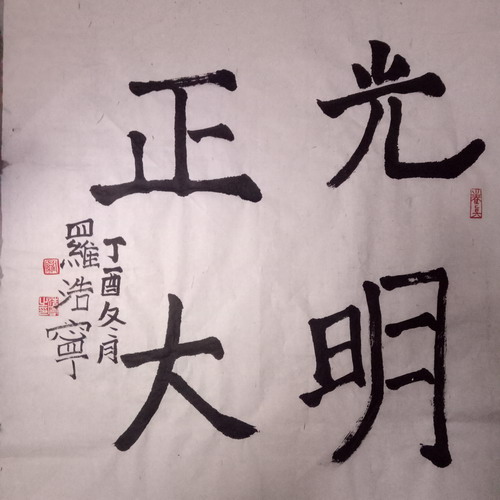 光明
正大
丁酉冬月
羅浩寧